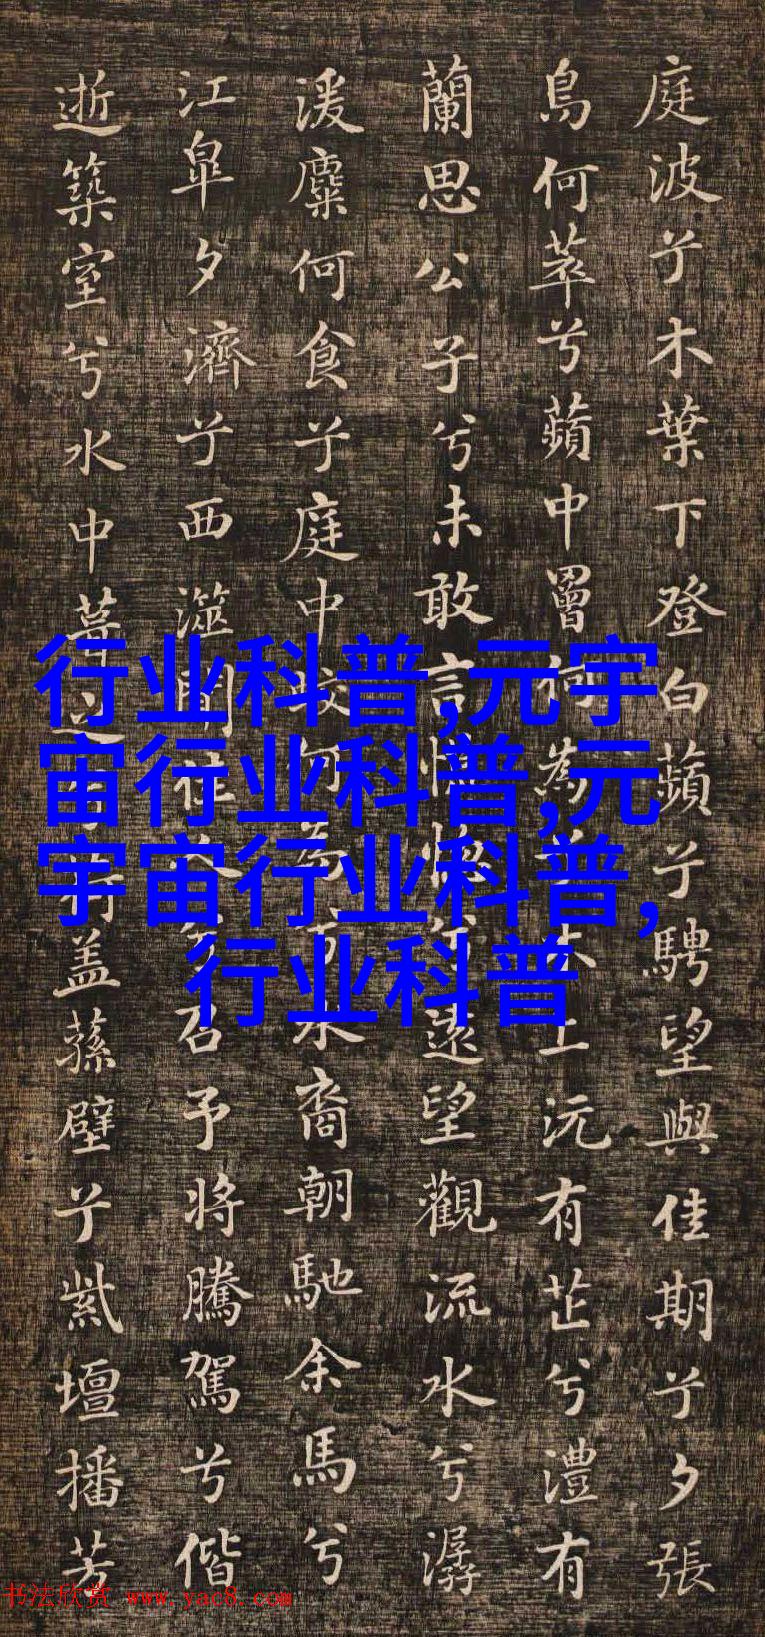 庭波兮木葉下登白蘋兮騁望與佳期兮夕張
鳥何萃兮蘋中罾何為兮木上沅有芷兮澧有
蘭思公子兮未敢言怳惚兮遠望觀流水兮潺
湲麋何食兮庭中蛟何為兮水裔朝馳余馬兮
江皐夕濟兮西澨聞佳人兮召予將騰駕兮偕
逝築室兮水中葺之兮荷盖蓀壁兮紫壇播芳
行业科普,元宇
宙行业科普,元
宇宙行业科普,
行业科普
书法欣赏 www.yac8.com